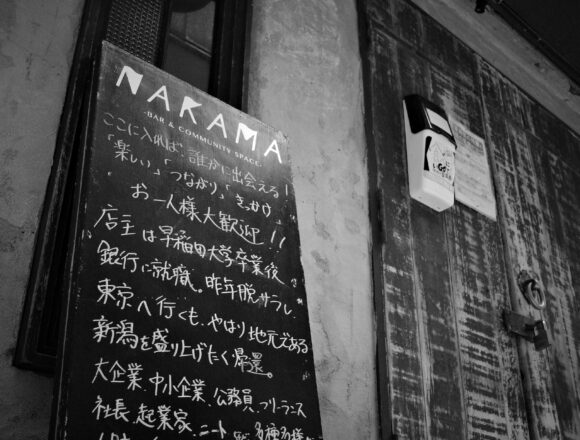 NAKAMA
-BAR & COMMUNITY SPACE-
ここに入れば、誰かに出会える!
「楽しい」「つながり」「きっかけ」
お一人様大歓迎!!
店主は早稲田大学卒業後
銀行に就職。昨年脱サラし
東京へ行くも、やはり地元である
新潟を盛り上げたく帰還。
大企業、中小企業、公務員、フリーランス
社長、起業家、ニート
各種各様